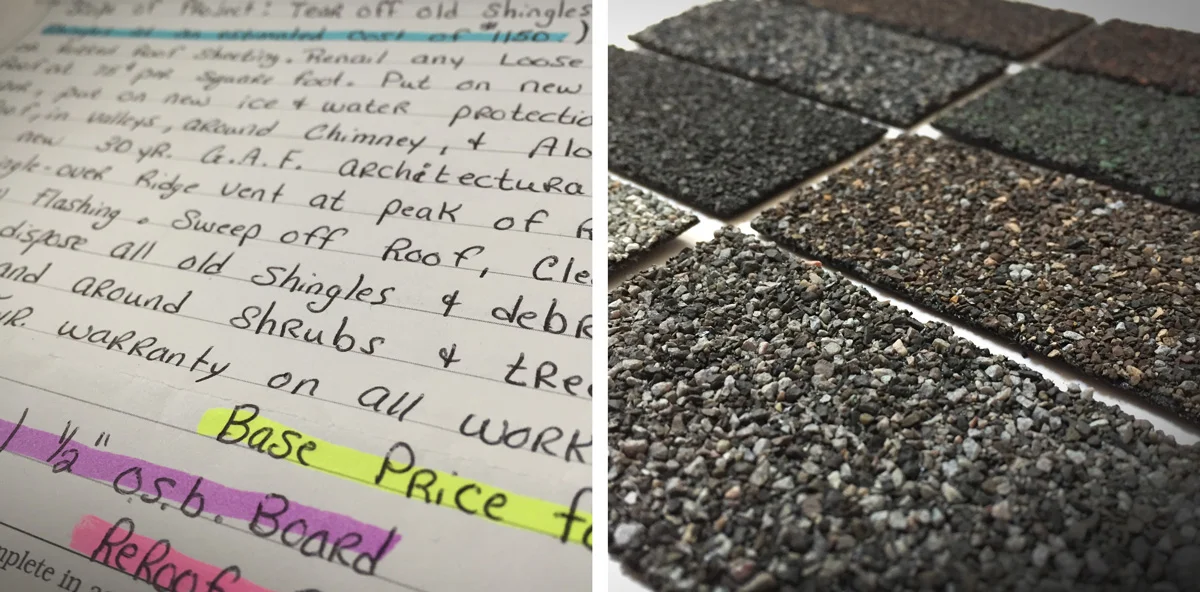 of Project: Tear off old Shingles
at an estimated cost of $1150 )
Roof Sheeting. Renail any Loose
Roof at 75¢ per Square foot. Put on new
put on new ice & water protectio
in valleys, around Chimney, & Alo
new 30 yR. G.A.F. architectura
ngle-over Ridge vent at peak of R
Flashing. Sweep off Roof, Cle
dispose all old Shingles & debr
and around Shrubs & tree
yR. warranty on all work
Base Price fo
/ 1/2" o.s.b. Board
ReRoof
mplete in